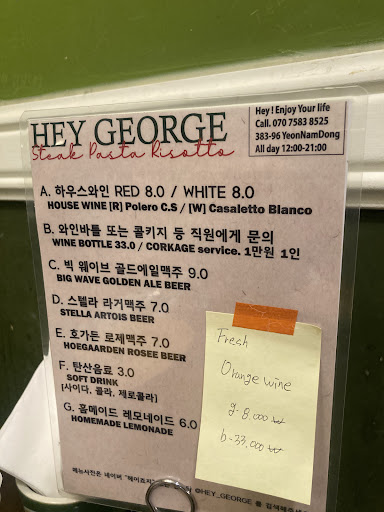 Hey ! Enjoy Your life
Call. 070 7583 8525
383-96 YeonNamDong
All day 12:00-21:00
HEY GEORGE
Steak Pasta Risotto
A. 하우스와인 RED 8.0 / WHITE 8.0
HOUSE WINE [R] Polero C.S / [W] Casaletto Blanco
B. 와인바틀 또는 콜키지 등 직원에게 문의
WINE BOTTLE 33.0 / CORKAGE service. 1만원 1인
C. 빅 웨이브 골드에일맥주 9.0
BIG WAVE GOLDEN ALE BEER
D. 스텔라 라거맥주 7.0
STELLA ARTOIS BEER
E. 호가든 로제맥주 7.0
HOEGAARDEN ROSEE BEER
F. 탄산음료 3.0
SOFT DRINK
[사이다, 콜라, 제로콜라]
G. 홈메이드 레모네이드 6.0
HOMEMADE LEMONADE
Fresh
Orange wine
g. 8,000 ₩
b. 33,000 ₩
메뉴사진은 네이버 "헤이죠지" @HEY_GEORGE 를